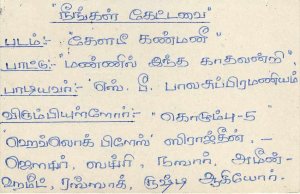 "நீங்கள் கேட்டவை"
படம்:- "கேளடி கண்மணி"
பாட்டு:- "மண்ணில் இந்த காதலன்றி"
பாடியவர்:- "எஸ். பீ. பாலசுப்பிரமணியம்
விரும்பியுள்ளோர்:- "கொழும்பு-5"
ஹெவ்லொக் பிளேஸ் ஸிராஜ்தீன், -
ஜெஸீமா, ஸஃரி, நஸார், அமீன் -
ஹமீட், ரஸ்ஸாக், ருஷ்டி ஆகியோர்.